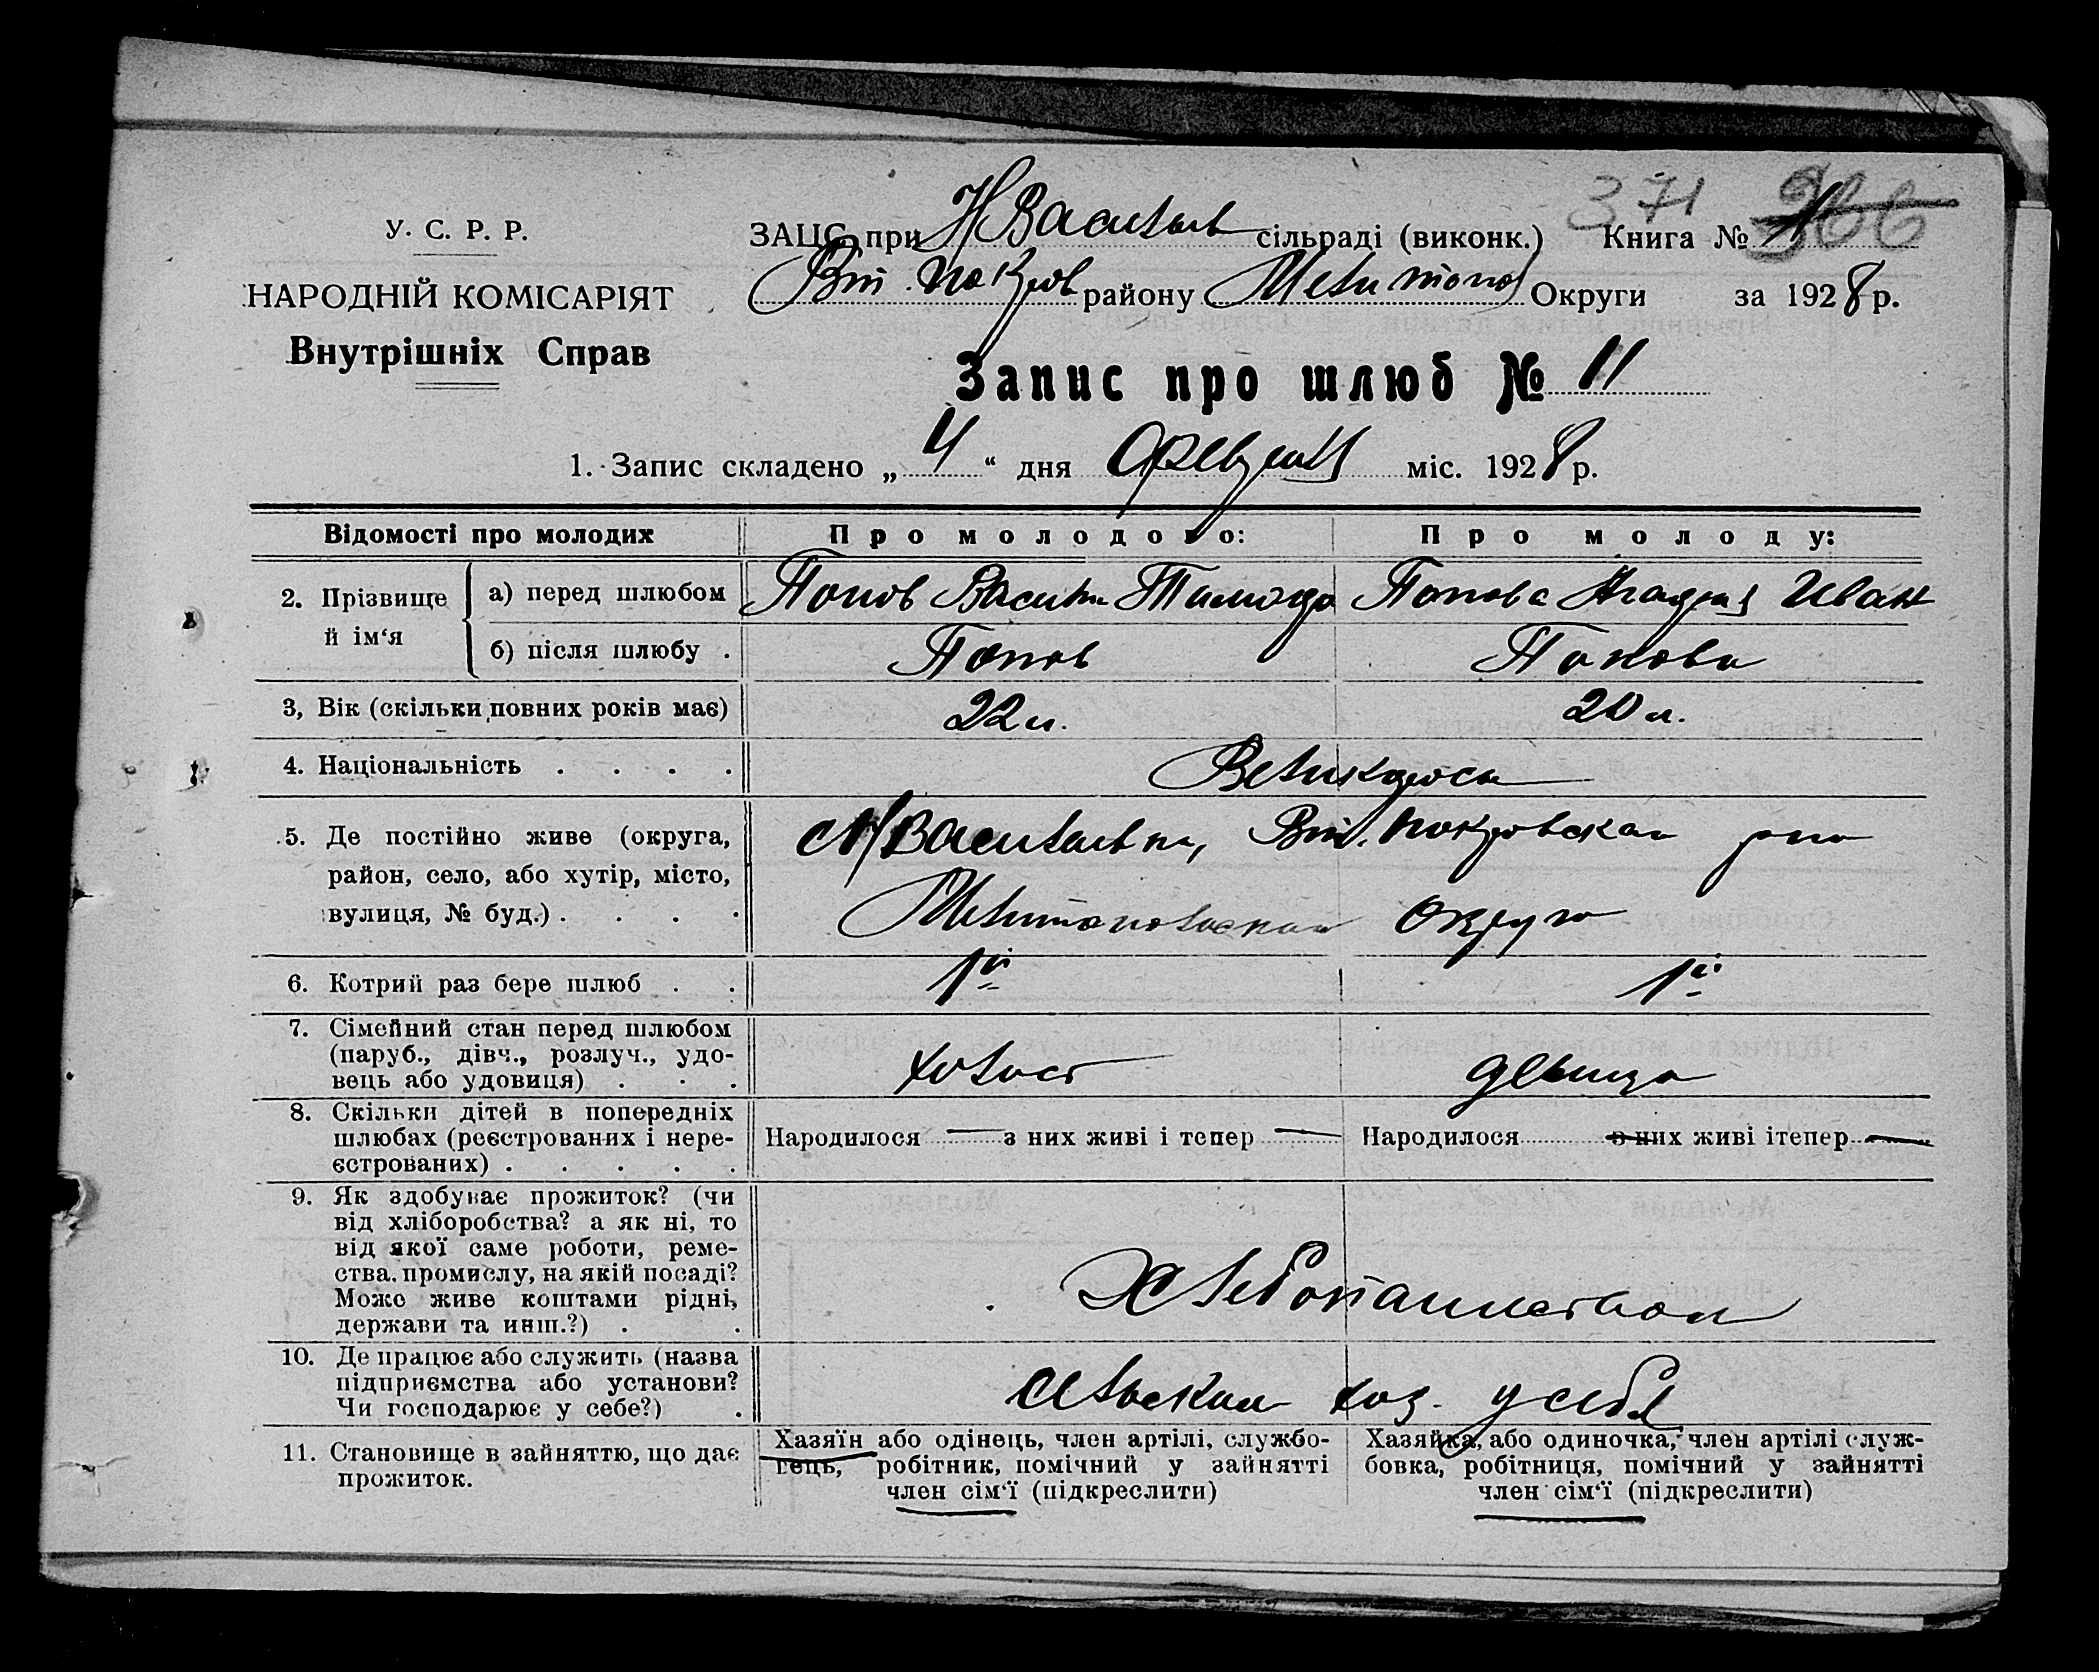 371 366
У. С. Р. Р.
НАРОДНІЙ КОМІСАРІЯТ
Внутрішніх Справ
ЗАЦС при Н Васильев сільраді (виконк.) Книга №
Вт. Покров району Мелитопол Округи за 1928 р.
Запис про шлюб № 11
1. Запис складено „ 4 “ дня Февраля міс. 1928 р.
Відомості про молодих Про молодого: Про молоду:
2. Прізвище й ім‘я а) перед шлюбом Попов Василь Тимофе Попова Агафия Иван
б) після шлюбу . Попов Попова
3, Вік (скільки повних років має) 22 л. 20 л.
4. Національність . . . . Великоросы
5. Де постійно живе (округа,
район, село, або хутір, місто,
вулиця, № буд.) . . . .
с Н Васильевка, Вт. Покровская р-на
Мелитопольская округа
6. Котрий раз бере шлюб . . 1й 1й
7. Сімейний стан перед шлюбом
(паруб., дівч., розлуч., удо-
вець або удовиця) . . .
холост девица
8. Скільки дітей в попередніх
шлюбах (реєстрованих і нере-
єстрованих) . . . . .
Народилося — з них живі і тепер — Народилося з них живі ітепер —
9. Як здобуває прожиток? (чи
від хліборобства? а як ні, то
від якої саме роботи, реме-
ства, промислу, на якій посаді?
Може живе коштами рідні,
держави та инш.?) . .
Хлебопашеством
10. Де працює або служить (назва
підприємства або установи?
Чи господарює у себе?) .
сельском хоз. у себя
11. Становище в зайняттю, що дає
прожиток.
Хазяїн або одінець, член артілі, службо-
вець, робітник, помічний у зайнятті
член сім‘ї (підкреслити)
Хазяйка, або одиночка, член артілі служ-
бовка, робітниця, помічний у зайнятті
член сім‘ї (підкреслити)